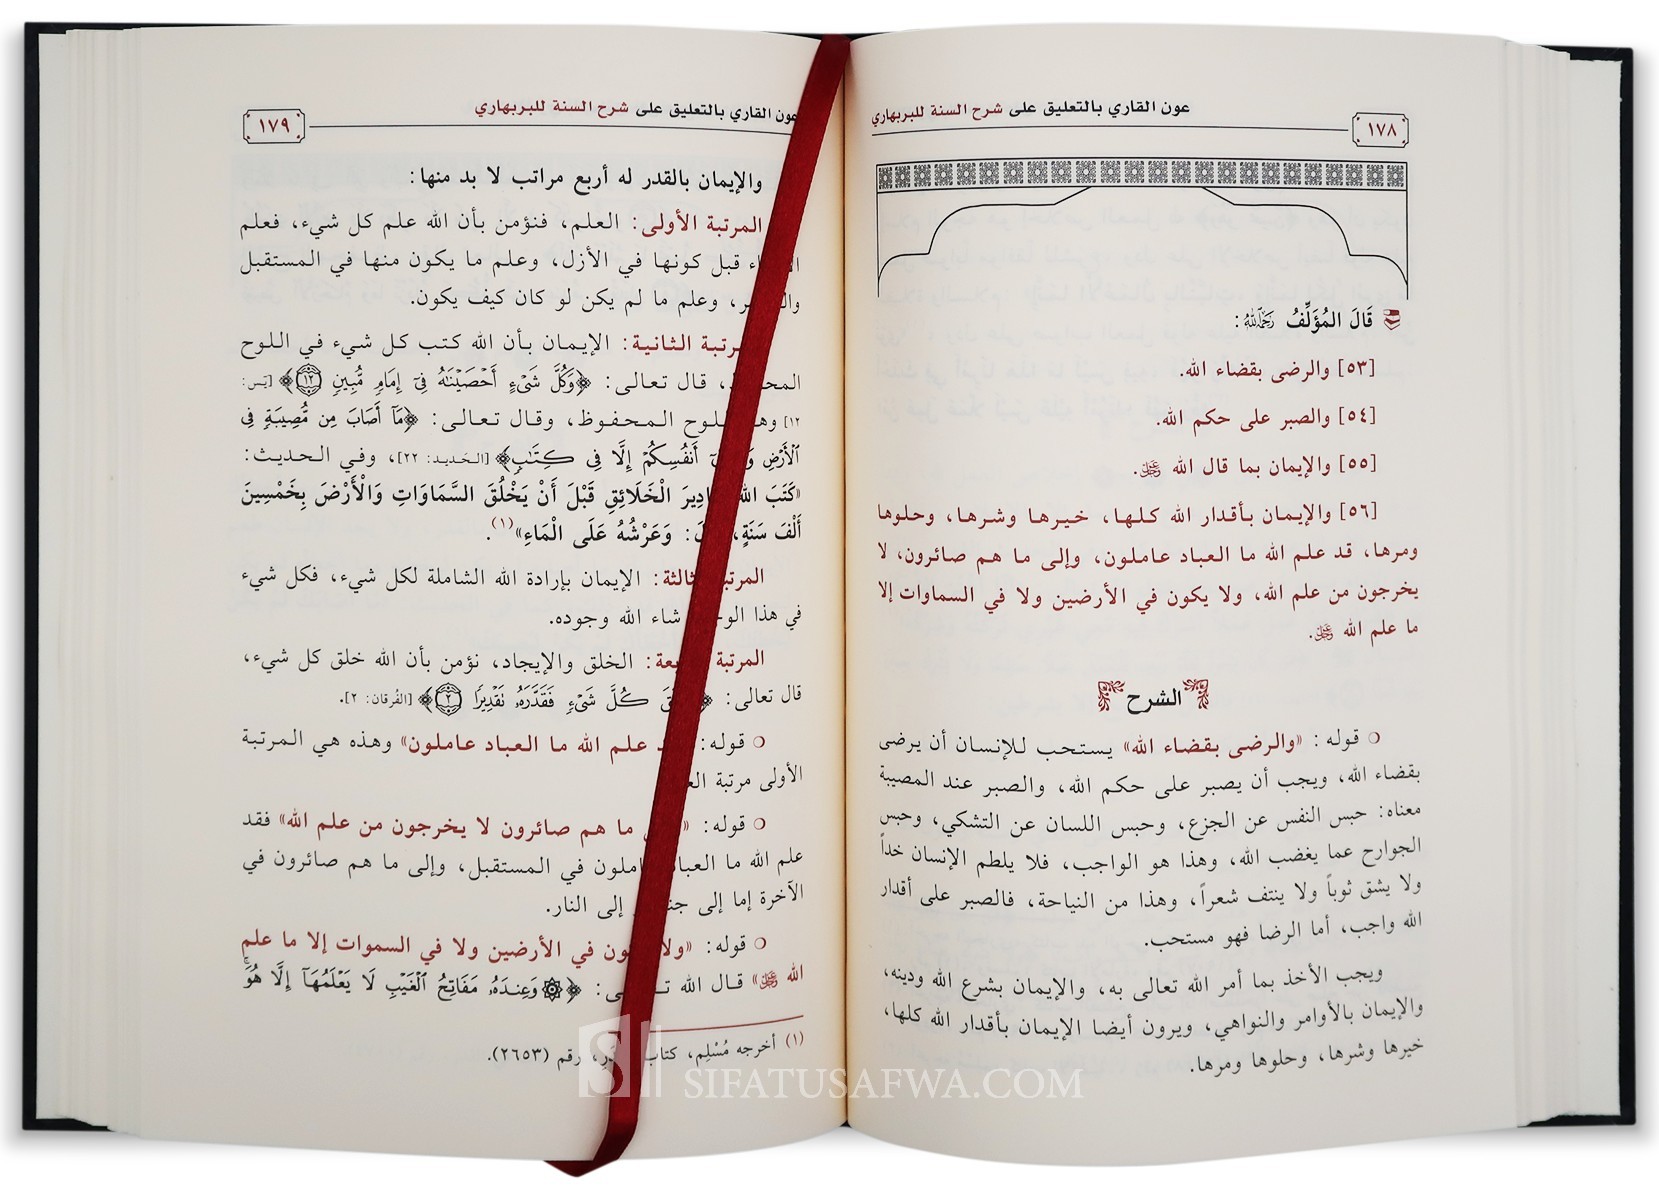 عون القاري بالتعليق على شرح السنة للبربهاري
١٧٨
قَالَ المُؤَلِّفُ رَحِمَهُ اللهُ:
[٥٣] والرضى بقضاء الله.
[٥٤] والصبر على حكم الله.
[٥٥] والإيمان بما قال الله عَزَّ وَجَلَّ.
[٥٦] والإيمان بأقدار الله كلها، خيرها وشرها، وحلوها
ومرها، قد علم الله ما العباد عاملون، وإلى ما هم صائرون، لا
يخرجون من علم الله، ولا يكون في الأرضين ولا في السماوات إلا
ما علم الله عَزَّ وَجَلَّ.
الشرح
○ قوله: «والرضى بقضاء الله» يستحب للإنسان أن يرضى
بقضاء الله، ويجب أن يصبر على حكم الله، والصبر عند المصيبة
معناه: حبس النفس عن الجزع، وحبس اللسان عن التشكي، وحبس
الجوارح عما يغضب الله، وهذا هو الواجب، فلا يلطم الإنسان خداً
ولا يشق ثوباً ولا ينتف شعراً، وهذا من النياحة، فالصبر على أقدار
الله واجب، أما الرضا فهو مستحب.
ويجب الأخذ بما أمر الله تعالى به، والإيمان بشرع الله ودينه،
والإيمان بالأوامر والنواهي، ويرون أيضا الإيمان بأقدار الله كلها،
خيرها وشرها، وحلوها ومرها.
عون القاري بالتعليق على شرح السنة للبربهاري
١٧٩
والإيمان بالقدر له أربع مراتب لا بد منها:
المرتبة الأولى: العلم، فنؤمن بأن الله علم كل شيء، فعلم
قبل كونها في الأزل، وعلم ما يكون منها في المستقبل
، وعلم ما لم يكن لو كان كيف يكون.
المرتبة الثانية: الإيمان بأن الله كتب كل شيء في اللوح
، قال تعالى: ﴿وَكُلَّ شَيْءٍ أَحْصَيْنَاهُ فِي إِمَامٍ مُّبِينٍ ١٢﴾ [يس:
١٢] اللوح المحفوظ، وقال تعالى: ﴿مَا أَصَابَ مِن مُّصِيبَةٍ فِي
الْأَرْضِ أَنفُسِكُمْ إِلَّا فِي كِتَابٍ﴾ [الحديد: ٢٢]، وفي الحديث:
«كَتَبَ اللهُ الْخَلَائِقِ قَبْلَ أَنْ يَخْلُقَ السَّمَاوَاتِ وَالْأَرْضَ بِخَمْسِينَ
أَلْفَ سَنَةٍ، : وَعَرْشُهُ عَلَى الْمَاءِ»(١).
المرتبة الثالثة: الإيمان بإرادة الله الشاملة لكل شيء، فكل شيء
في هذا شاء الله وجوده.
المرتبة : الخلق والإيجاد، نؤمن بأن الله خلق كل شيء،
قال تعالى: ﴿ كُلَّ شَيْءٍ فَقَدَّرَهُ تَقْدِيرًا ٢﴾ [الفُرقان: ٢].
○ قوله: علم الله ما العباد عاملون» وهذه هي المرتبة
الأولى مرتبة
○ قوله: « ما هم صائرون لا يخرجون من علم الله» فقد
علم الله ما العباد عاملون في المستقبل، وإلى ما هم صائرون في
الآخرة إما إلى إلى النار.
○ قوله: «ولا يكون في الأرضين ولا في السموات إلا ما علم
الله عَزَّ وَجَلَّ» قال الله : ﴿۞وَعِندَهُ مَفَاتِحُ الْغَيْبِ لَا يَعْلَمُهَا إِلَّا هُوَ
(١) أخرجه مُسْلِم، كتاب ، رقم (٢٦٥٣).
SIFATUSAFWA.COM